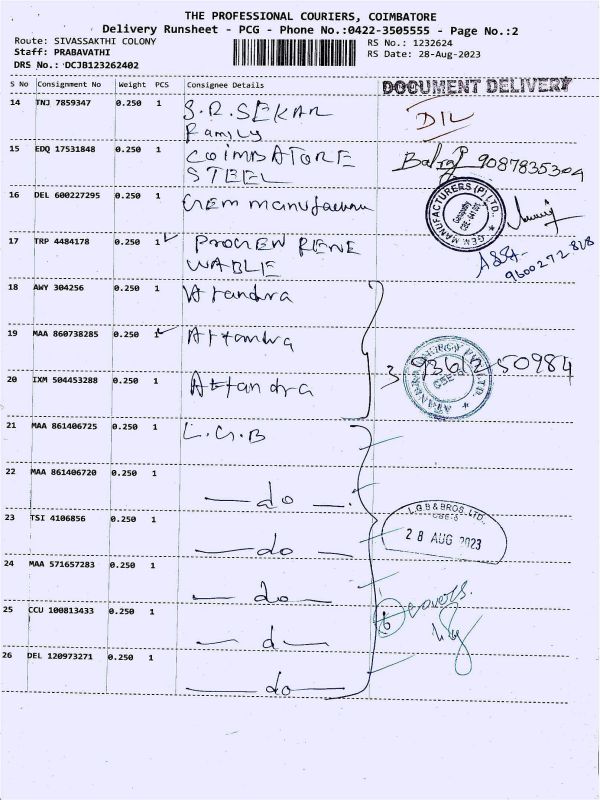 THE PROFESSIONAL COURIERS, COIMBATORE
Delivery Runsheet - PCG - Phone No.:0422-3505555 - Page No.:2
Route: SIVASSAKTHI COLONY RS No.: 1232624
Staff: PRABAVATHI RS Date: 28-Aug-2023
DRS No.: DCJB123262402
S No Consignment No Weight PCS Consignee Details DOCUMENT DELIVERY
14 TNJ 7859347 0.250 1 S.R.SEKAR DIL
Family
15 EDQ 17531848 0.250 1 COIMBATORE 9087835304
STEEL
16 DEL 600227295 0.250 1 Gem manufacturu GEM MANUFACTURERS (P) LTD.
17 TRP 4484178 0.250 1 RENE
WABLE 9600272828
18 AWY 304256 0.250 1
19 MAA 860738285 0.250 1
20 IXM 504453288 0.250 1 3 9361250984
21 MAA 861406725 0.250 1 L.G.B
22 MAA 861406720 0.250 1 — do —
L.G.B & BROS. LTD.
CBE-6
23 TSI 4106856 0.250 1 — do — 28 AUG 2023
24 MAA 571657283 0.250 1 — do —
25 CCU 100813433 0.250 1 — d — 6 covers.
26 DEL 120973271 0.250 1 — do —